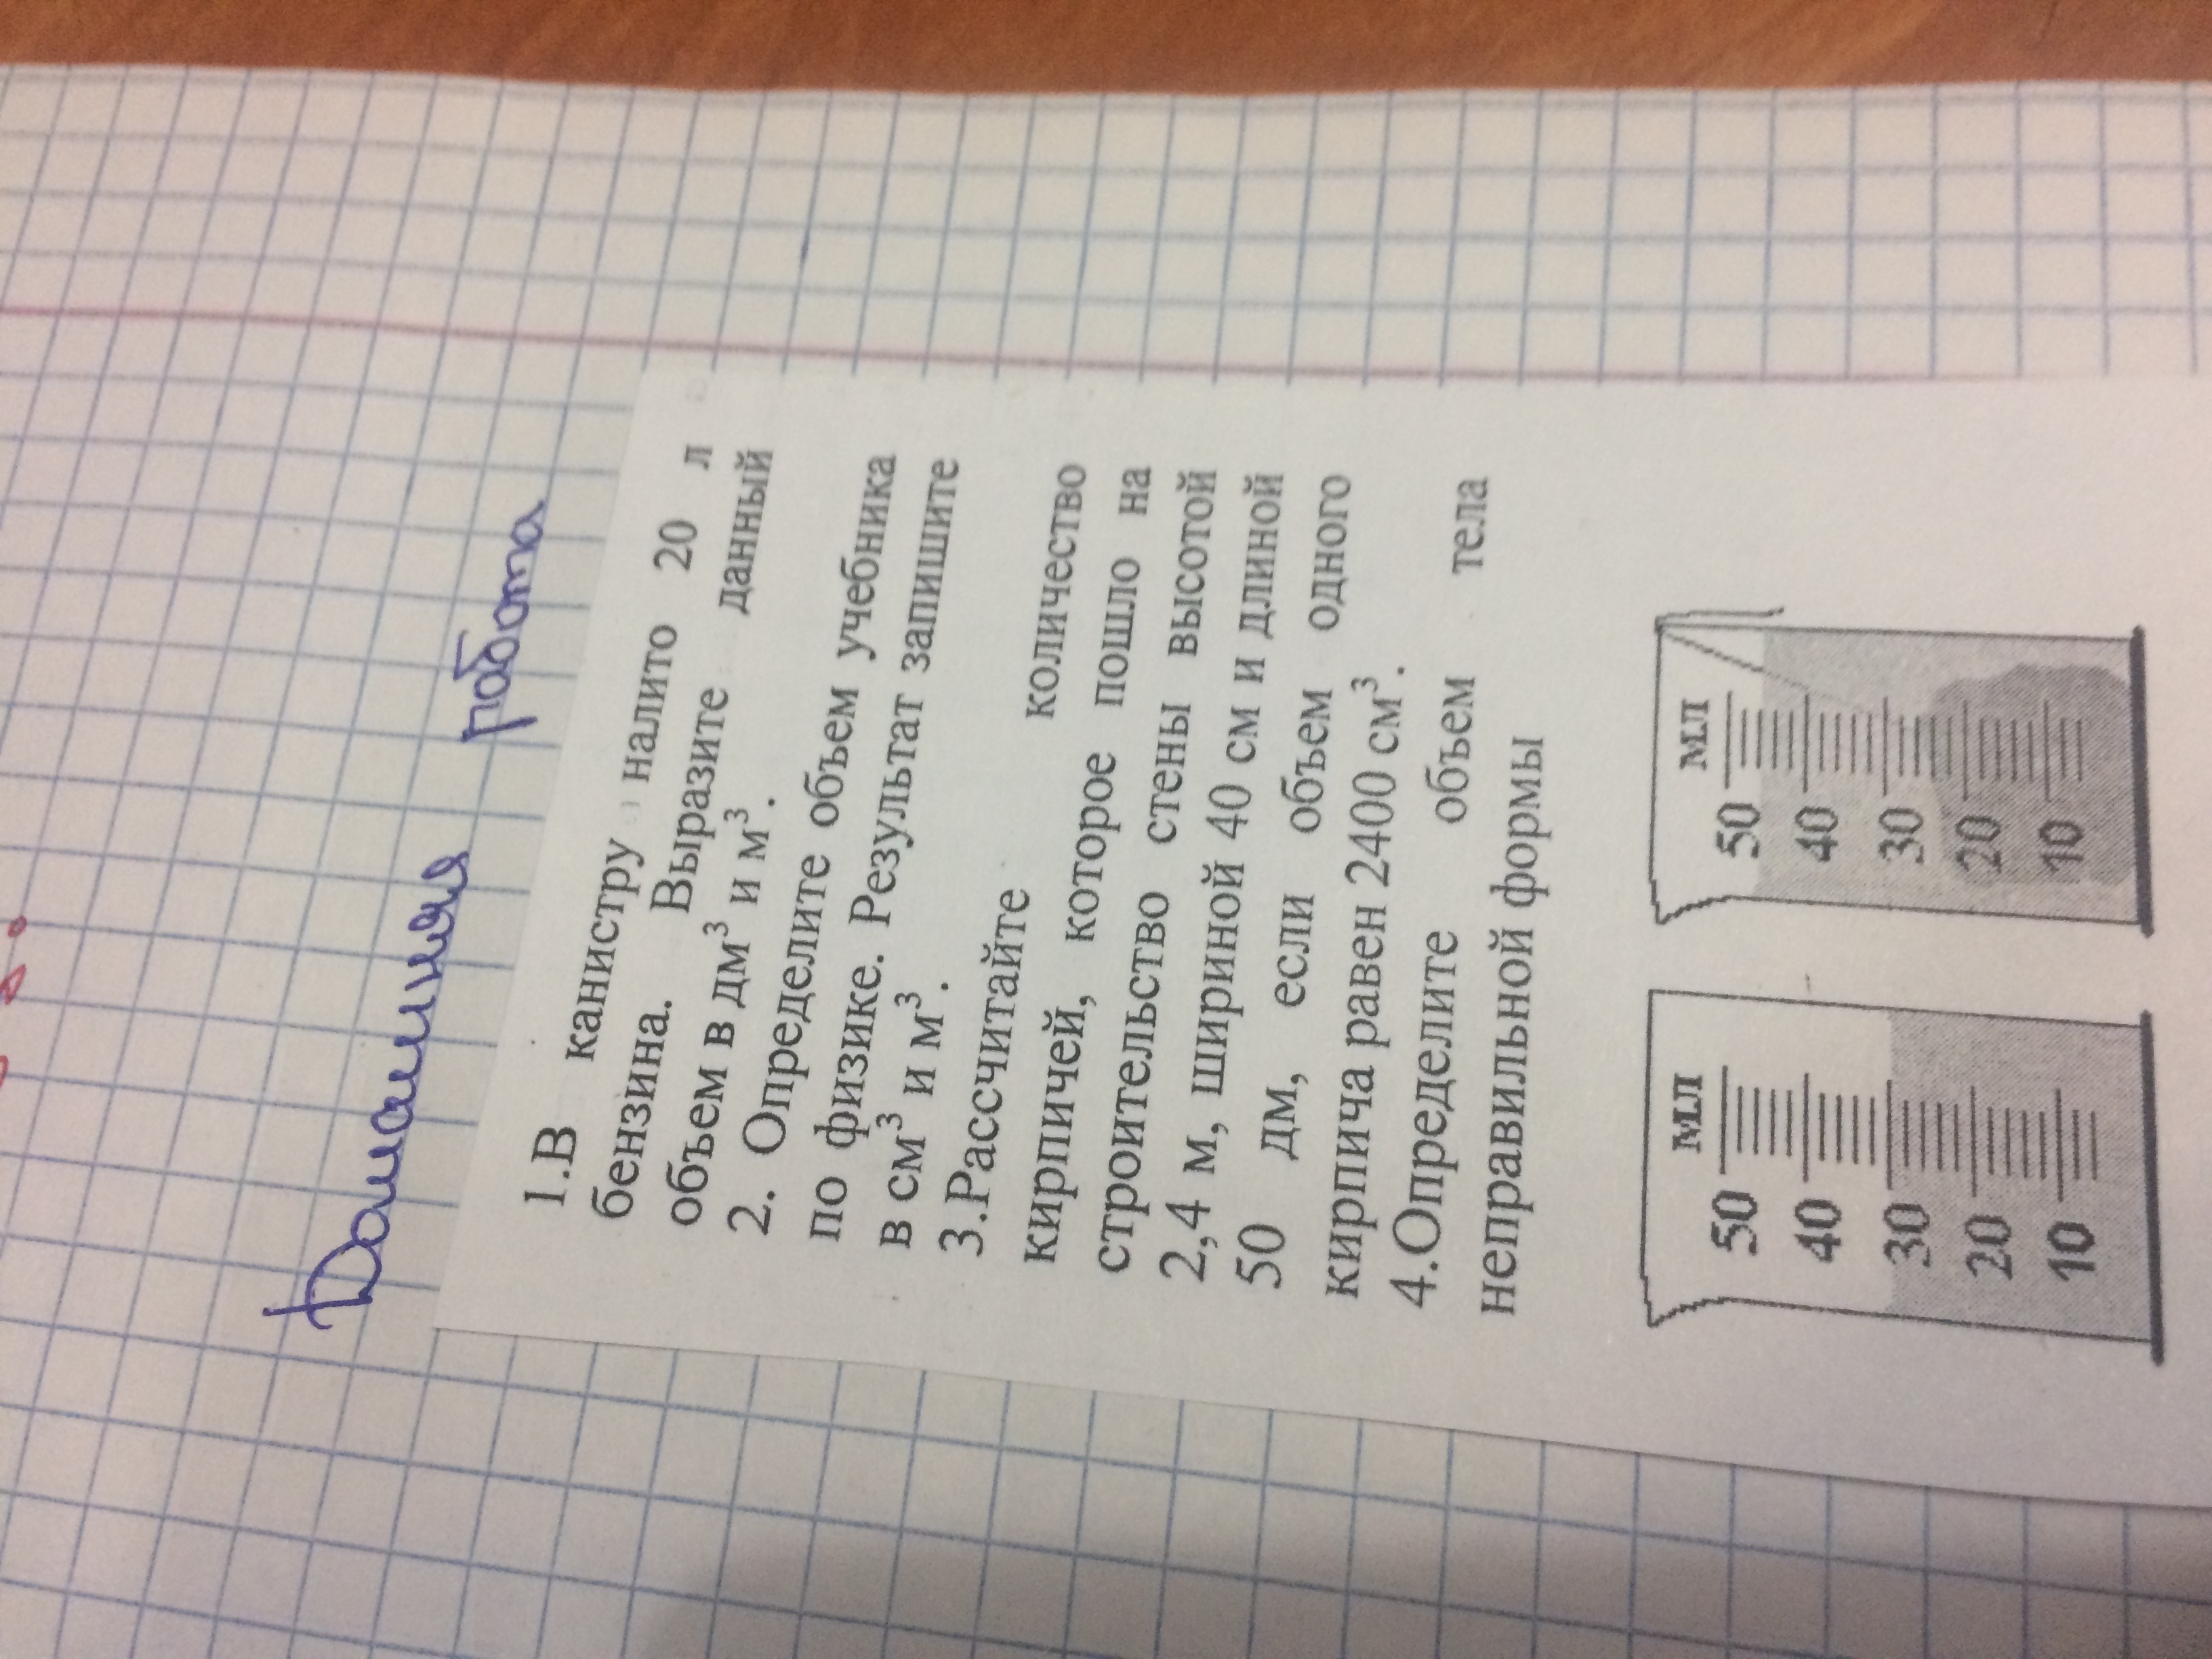 Домашняя работа
1.В канистру налито 20 л
бензина. Выразите данный
объем в дм³ и м³.
2. Определите объем учебника
по физике. Результат запишите
в см³ и м³.
3.Рассчитайте количество
кирпичей, которое пошло на
строительство стены высотой
2,4 м, шириной 40 см и длиной
50 дм, если объем одного
кирпича равен 2400 см³.
4.Определите объем тела
неправильной формы
мл мл
50 50
40 40
30 30
20 20
10 10